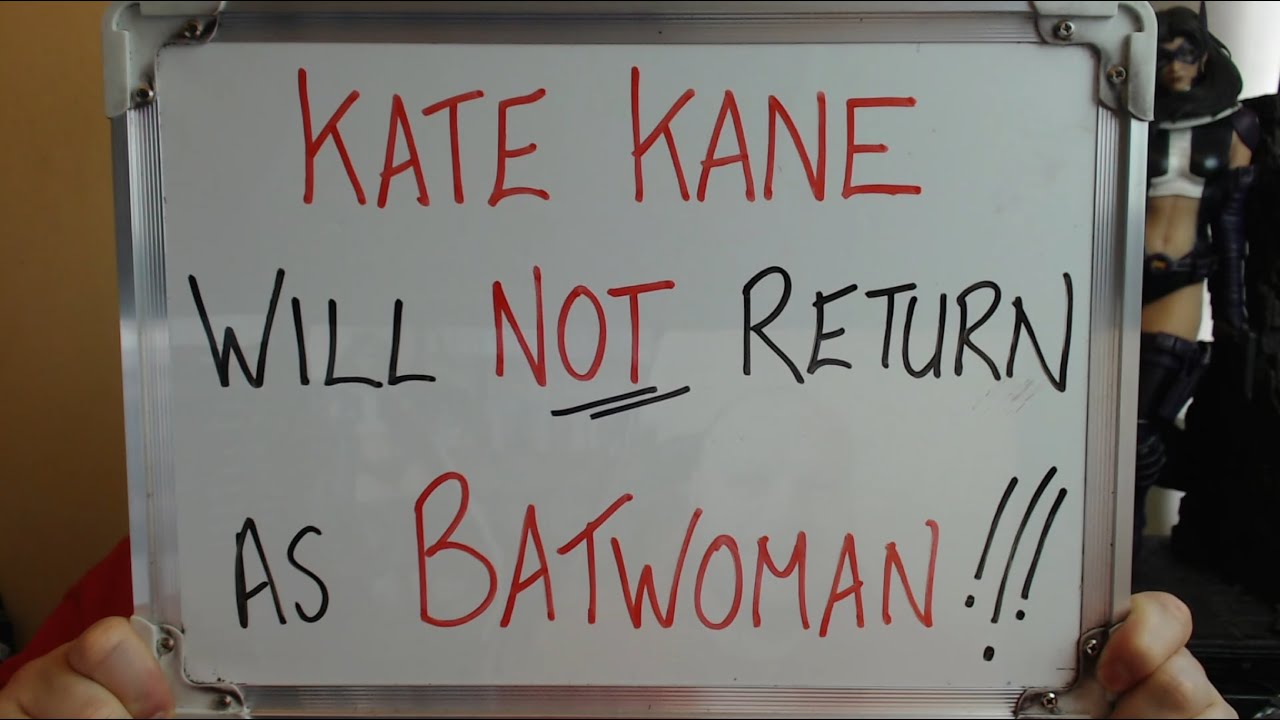 KATE KANE
WILL NOT RETURN
AS BATWOMAN!!!